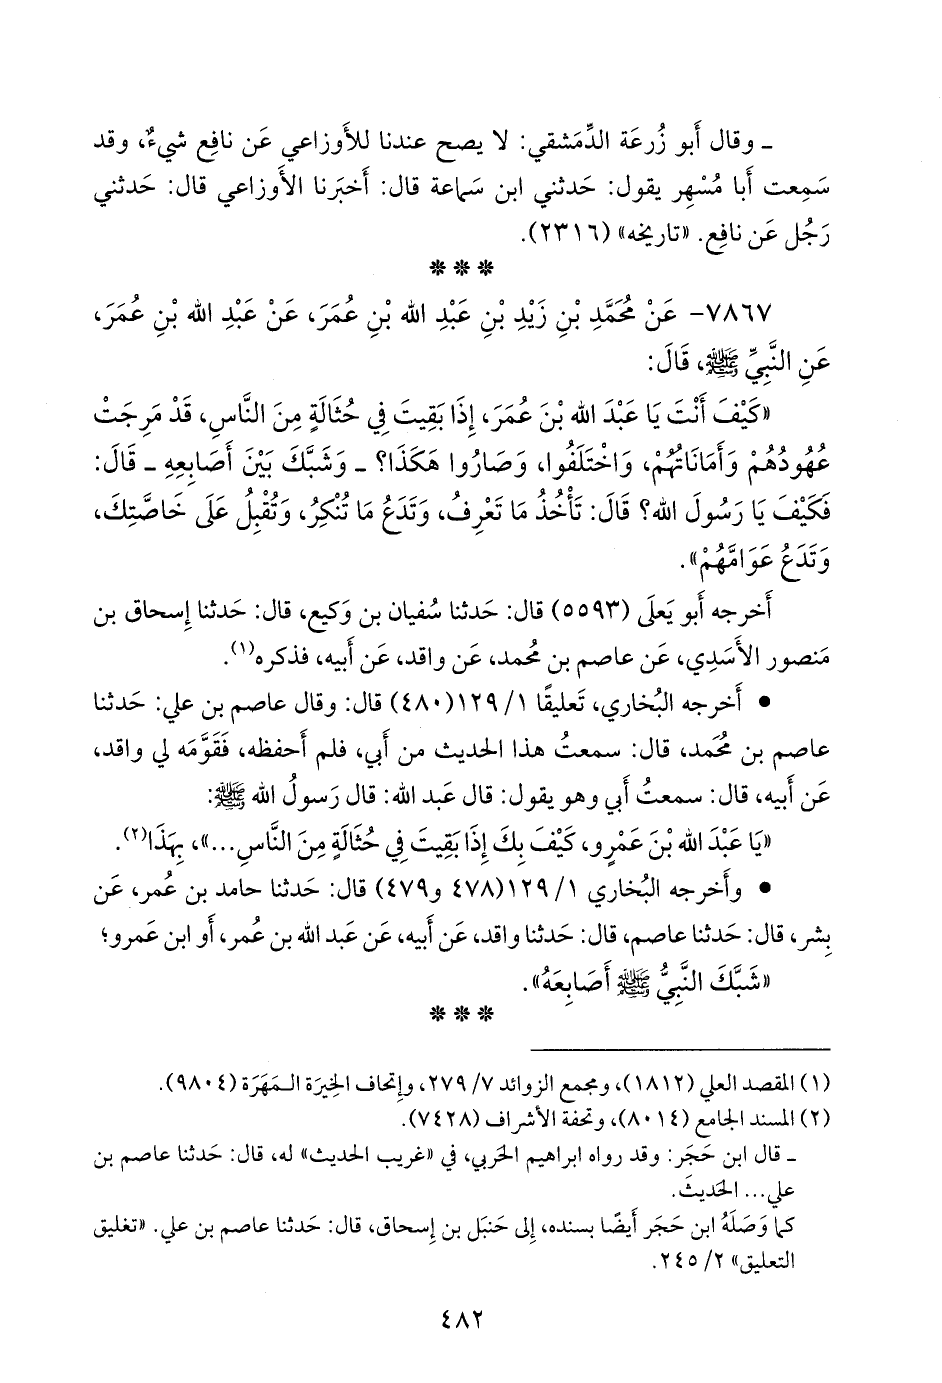 ـ وقال أَبو زُرعَة الدِّمَشقي: لا يصح عندنا للأَوزاعي عَن نافِع شيءٌ، وقد
سَمِعت أَبا مُسْهِر يقول: حَدثني ابن سَماعة قال: أَخبَرنا الأَوزاعي قال: حَدثني
رَجُل عَن نافِع. «تاريخه» (٢٣١٦).
***
٧٨٦٧- عَنْ مُحَمَّدِ بْنِ زَيْدِ بْنِ عَبْدِ الله بْنِ عُمَرَ، عَنْ عَبْدِ الله بْنِ عُمَرَ،
عَنِ النَّبِيِّ ﷺ، قَالَ:
«كَيْفَ أَنْتَ يَا عَبْدَ الله بْنَ عُمَرَ، إِذَا بَقِيتَ فِي حُثَالَةٍ مِنَ النَّاسِ، قَدْ مَرِجَتْ
عُهُودُهُمْ وَأَمَانَاتُهُمْ، وَاخْتَلَفُوا، وَصَارُوا هَكَذَا؟ ـ وَشَبَّكَ بَيْنَ أَصَابِعِهِ ـ قَالَ:
فَكَيْفَ يَا رَسُولَ الله؟ قَالَ: تَأْخُذُ مَا تَعْرِفُ، وَتَدَعُ مَا تُنْكِرُ، وَتُقْبِلُ عَلَى خَاصَّتِكَ،
وَتَدَعُ عَوَامَّهُمْ».
أَخرجه أَبو يَعلَى (٥٥٩٣) قال: حَدثنا سُفيان بن وَكيع، قال: حَدثنا إِسحاق بن
مَنصور الأَسَدِي، عَن عاصم بن مُحمد، عَن واقد، عَن أَبيه، فذكره(١).
• أَخرجه البُخاري، تَعليقًا ١/ ١٢٩(٤٨٠) قال: وقال عاصم بن علي: حَدثنا
عاصم بن مُحَمد، قال: سمعتُ هذا الحديث من أَبي، فلم أَحفظه، فَقَوَّمَه لي واقد،
عَن أَبيه، قال: سمعتُ أَبي وهو يقول: قال عَبد الله: قال رَسولُ الله ﷺ:
«يَا عَبْدَ الله بْنَ عَمْرٍو، كَيْفَ بِكَ إِذَا بَقِيتَ فِي حُثَالَةٍ مِنَ النَّاسِ...»، بِهَذَا(٢).
• وأَخرجه البُخاري ١/ ١٢٩(٤٧٨ و٤٧٩) قال: حَدثنا حامد بن عُمر، عَن
بِشر، قال: حَدثنا عاصم، قال: حَدثنا واقد، عَن أَبيه، عَن عَبد الله بن عُمر، أَو ابن عَمرو؛
«شَبَّكَ النَّبِيُّ ﷺ أَصَابِعَهُ».
***
(١) المقصد العلي (١٨١٢)، ومجمع الزوائد ٧/ ٢٧٩، وإِتحاف الخِيرَة الـمَهَرَة (٩٨٠٤).
(٢) المسند الجامع (٨٠١٤)، وتحفة الأشراف (٧٤٢٨).
ـ قال ابن حَجَر: وقد رواه ابراهيم الحَربي، في «غريب الحديث» له، قال: حَدثنا عاصم بن
علي... الحَديثَ.
كما وَصَلَهُ ابن حَجَر أَيضًا بسنده، إِلى حَنبَل بن إِسحاق، قال: حَدثنا عاصم بن علي. «تغليق
التعليق» ٢/ ٢٤٥.
٤٨٢